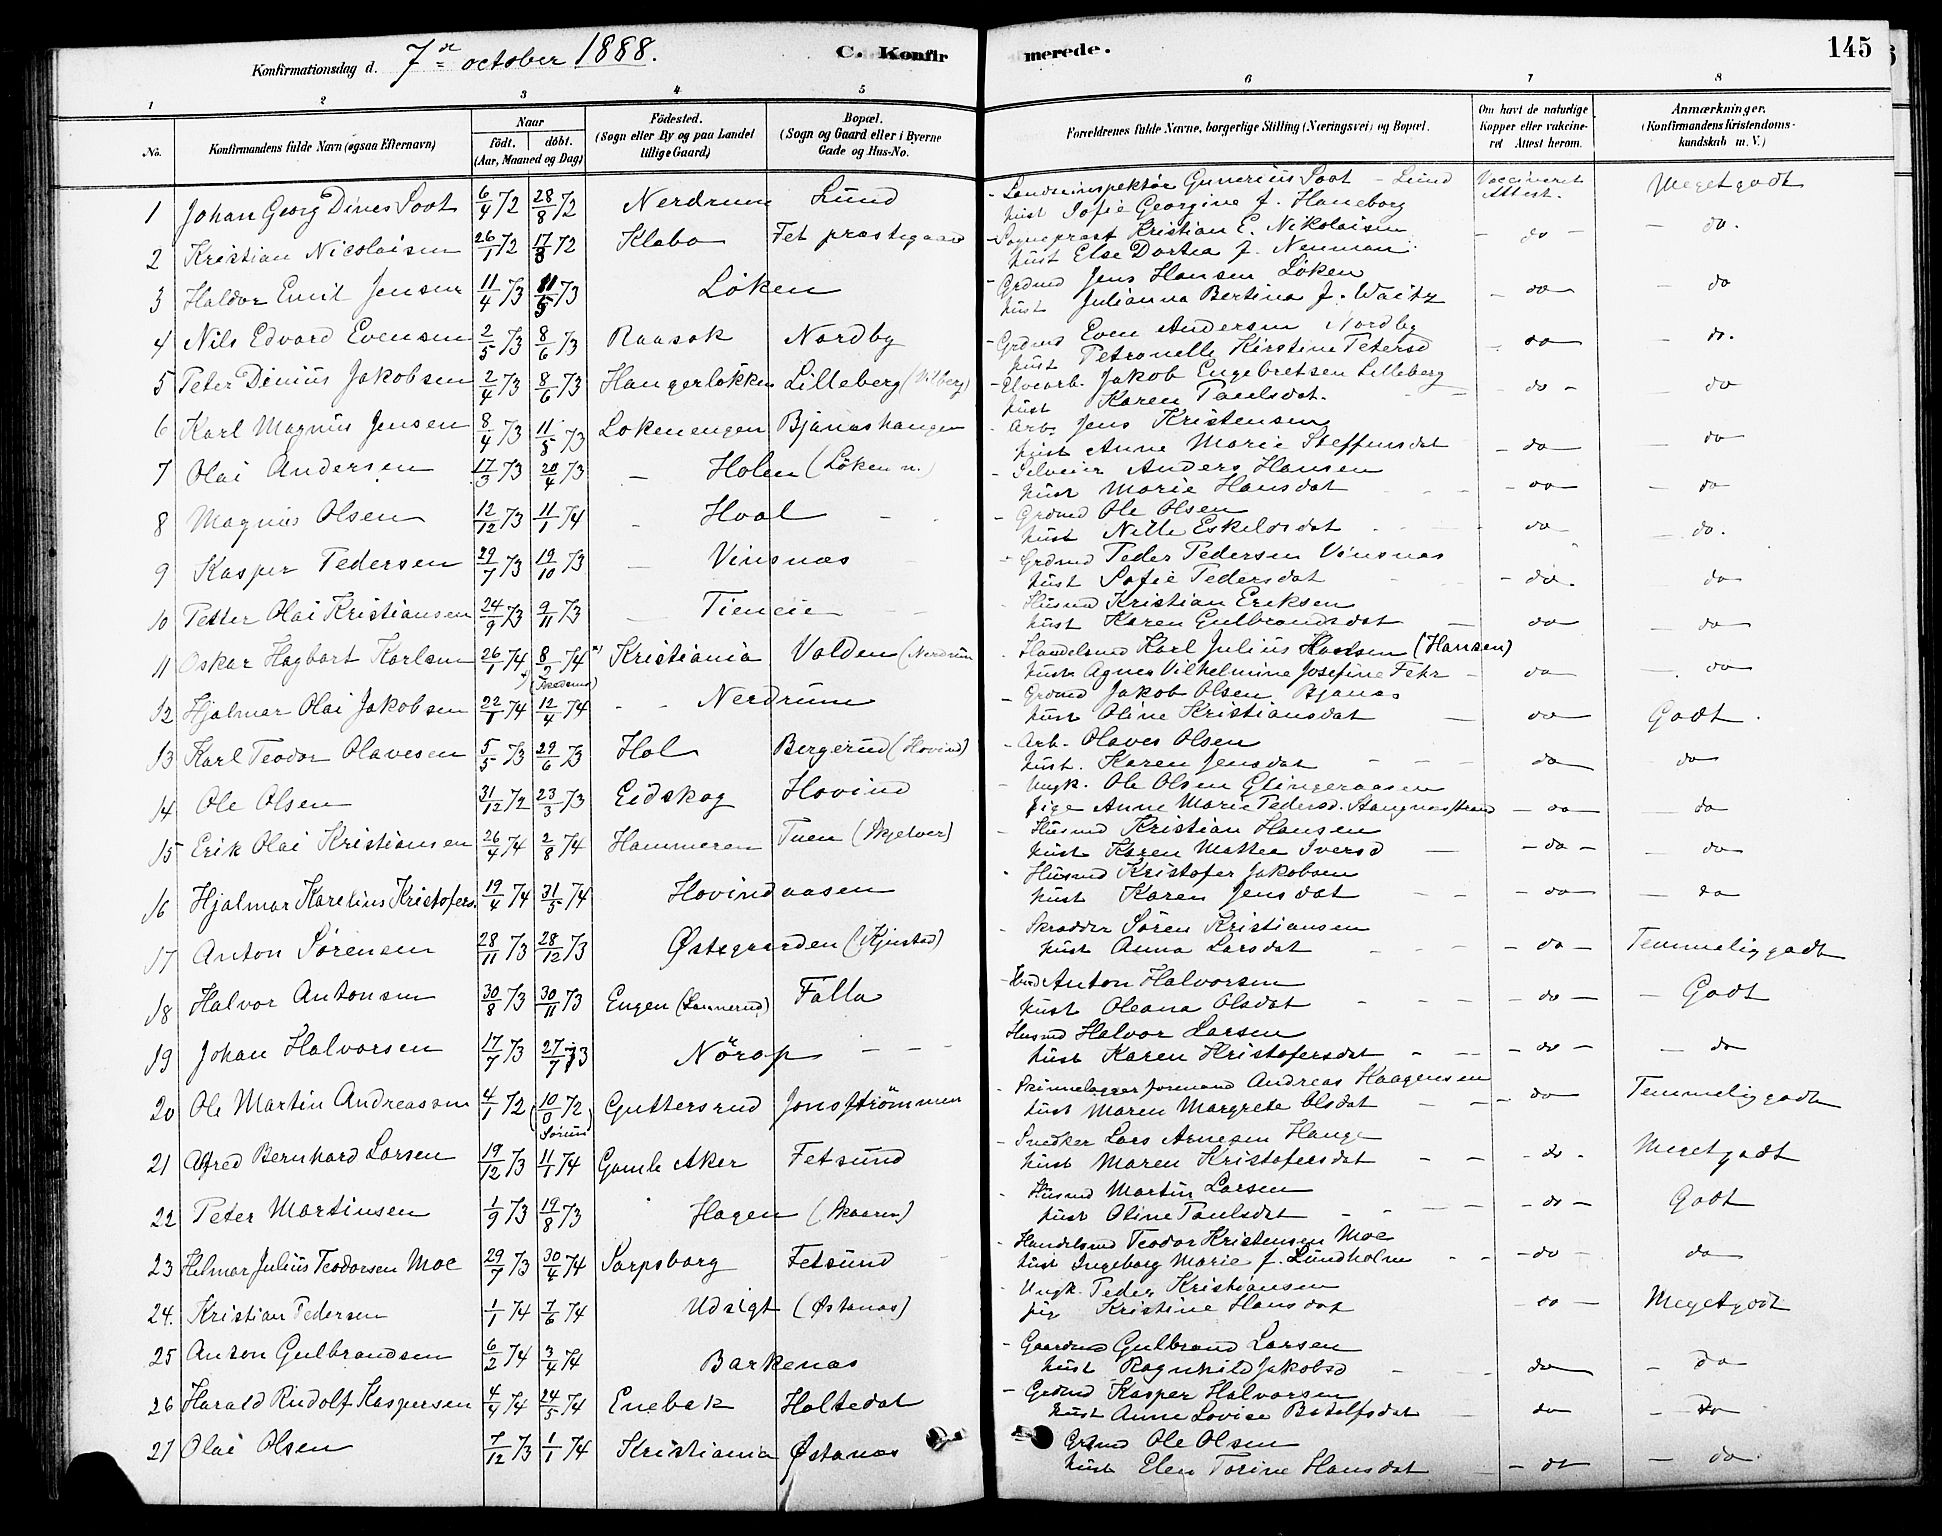 Konfirmationsdag d. 7de october 1888. C. Konfirmerede. 145
1 2 3 4 5 6 7 8
No. Konfirmandens fulde Navn (ogsaa Efternavn) Naar födt. döbt. (Aar, Maaned og Dag) Födested. (Sogn eller By og paa Landet tillige Gaard) Bopæl. (Sogn og Gaard eller i Byerne Gade og Hus-No. Forældrenes fulde Navne, borgerlige Stilling (Næringsvei) og Bopæl. Om havt de naturlige Kopper eller vakcineret Attest herom. Anmærkninger. (Konfirmandens Kristendomskundskab m. V.)
1 Johan Georg Dines Soot 6/4 72 28/8 72 Nerdrum Lund - Lendseinspektør Gunerius Soot - Lund Vaccineret Meget godt
hust Sofie Georgine f. Haneborg Attest.
2 Kristian Nicolaisen 26/1 72 17/3 72 Klabo Fet prastegaard - Sogneprast Kristian E. Nikolaisen - do - - do.
hust Else Dortea f. Neuman
3 Haldor Emil Jensen 11/4 73 11/5 73 Löken - Grdmd Jens Hansen Löken - do - - do
hust Julianna Bertina f. Waitz
4 Nils Edvard Evensen 2/5 73 8/6 73 Raasok Nordby - Grdmd Even Andersen Nordby - do - do.
hust Petronelle Kirstine Petersd
5 Peter Dinius Jakobsen 2/4 73 8/6 73 Hangerlökken Lilleberg (Vilberg) - Elvearb. Jakob Engebretsen Lilleberg - do - - do
hust Karen Paulsdat.
6 Karl Magnus Jensen 8/4 73 11/5 73 Lokenengen Bjanashangen - Arb. Jens Kristensen
hust Anne Marie Steffensdat - do - - do
7 Olai Andersen 17/3 73 20/4 73 - Holen (Löken n.) - Selveier Anders Hansen
hust Marie Hansdat - do - - do
8 Magnus Olsen 12/12 73 11/1 74 - Hval - - Grdmd Ole Olsen
hust Nille Eskelsdat - do - - do.
9 Kasper Pedersen 29/7 73 19/10 73 - Vinsnas - Grdmd Peder Pedersen Vinsnas
hust Sofie Pedersdat - do. do
10 Petter Olai Kristiansen 24/9 73 9/11 73 - Tieneie - - Husmd Kristian Eriksen
hust Karen Gulbrandsdat - do - - do
11 Oskar Hagbart Karlsen 26/1 74 8/2 74 Kristiania Valden (Nerdrum - Handelsmd Karl Julius Hansen (Hansen)
hust Agnes Vilhelmine Josefine Fehr - do - do
12 Hjalmar Olai Jakobsen 22/1 74 12/4 74 - - Nerdrum - Grdmd Jakob Olsen Bjanas
hust Oline Kristiansdat - do - Godt.
13 Karl Teodor Olavesen 5/5 73 29/6 73 Hol Bergerud (Hovind) - Arb. Olaves Olsen
hust. Karen Jensdat - do - - do
14 Ole Olsen 31/12 72 23/3 73 Eidskog Hovind - Ungk. Ole Olsen
Pige Anne Marie Pedersd. - do - - do
15 Erik Olai Kristiansen 26/4 74 2/8 74 Hammeren Tuen (Skjelver) - Husmd Kristian Hansen
hust Karen Mattea Iversd - - do - - do
16 Hjalmar Karelius Kristofers. 19/4 74 31/5 74 Hovindaasen - Husmd Kristofer Jakobsen
hust Karen Jensdat - do - - do
17 Anton Sörensen 28/11 73 28/12 73 Östegaarden (Kjustad) - Skrädder Sören Kristiansen
hust Anna Larsdat - do - Temmelig godt
18 Halvor Antonsen 30/8 73 30/11 73 Engen (Lannerud) Falla - Hmd Anton Halvorsen
hust Oleana Olsdat - do - - Godt
19 Johan Halvorsen 17/7 73 27/7 73 Nörop - - - Husmd Halvor Larsen
hust Karen Kristofersdat - - do - - do
20 Ole Martin Andreassen 4/1 72 10/0 72 Guttersrud Jonsströmmen - Skinnelægger formand Andreas Haagensen
(Sørum) hust Maren Margrete Olsdat - do - Temmelig godt
21 Alfred Bernhard Larsen 19/12 73 11/1 74 Gamle Aker Fetsund - Snedker Lars Arnesen Hauge
hust Maren Kristofersdat - - do - Meget godt
22 Peter Martinsen 1/9 73 19/8 73 Hagen (Skaaren) - Husmd Martin Larsen
hust Oline Paulsdat - do - Godt
23 Helmar Julius Teodorsen Moe 29/7 73 30/4 74 Sarpsborg Fetsund - Handelsmd Teodor Kristensen Moe
hust Ingeborg Marie f. Lundholm - do - do
24. Kristian Pedersen 1/1 74 7/6 74 Udsigt (Østanas) - Ungk. Peder Kristiansen
pig Kristine Hansdat - do - Meget godt
25 Anton Gulbrandsen 6/2 74 3/4 74 Barkenas - Gaardmd Gulbrand Larsen
hust Ragnhild Jakobsd - do - - do
26 Harald Rudolf Kaspersen 4/4 74 24/5 74 Enebak Holtedat - Grdmd Kasper Halvorsen
hust Anne Lovise Botolfsdat - do - do
27 Olai Olsen 7/12 73 1/1 74 Kristiania Østanas Grdmd Ole Olsen
hust Elen Torine Hansdat - do - - do.